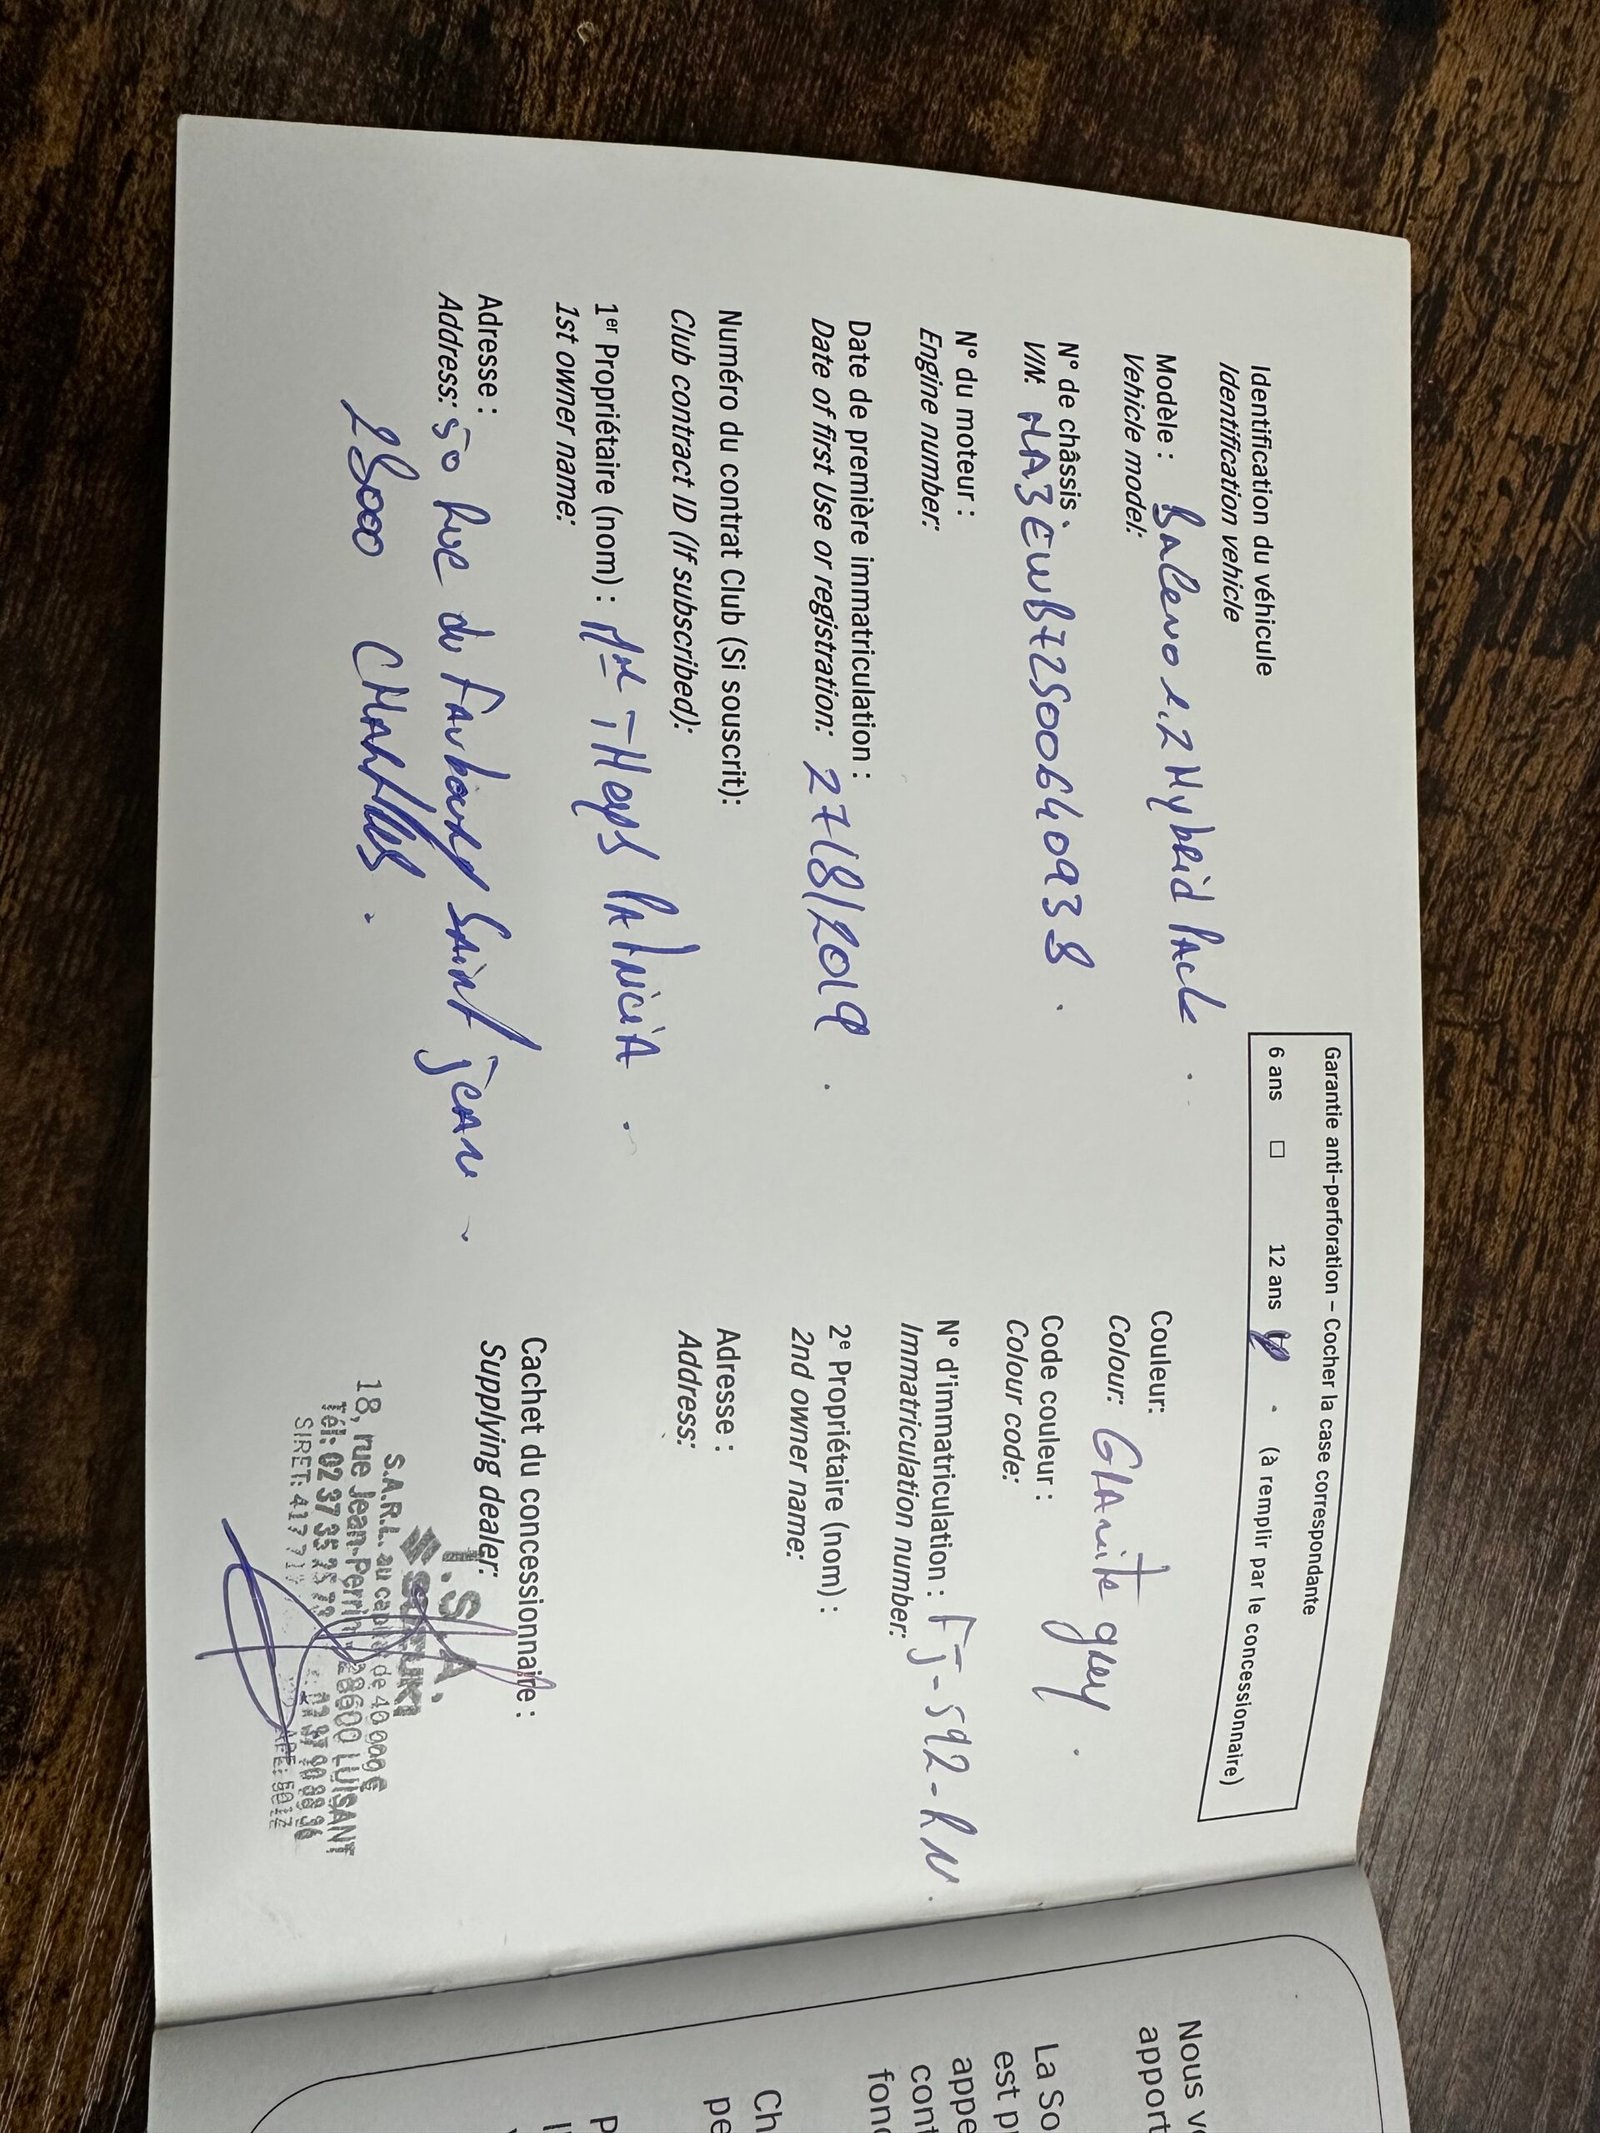 Garantie anti-perforation – Cocher la case correspondante
6 ans □ 12 ans (à remplir par le concessionnaire)
Identification du véhicule
Identification vehicle
Modèle :
Vehicle model: Baleno 1.2 Hybrid Pack
N° de châssis
VIN: MA3EWB72S00640938
N° du moteur :
Engine number:
Date de première immatriculation :
Date of first Use or registration: 27/8/2019
Numéro du contrat Club (Si souscrit):
Club contract ID (If subscribed):
1er Propriétaire (nom) :
1st owner name: Patricia
Adresse :
Address: 50 Rue du Faubourg Saint Jean
28000 Chartres
Couleur:
Colour: Granite grey
Code couleur :
Colour code:
N° d'immatriculation : FJ-592-RN
Immatriculation number:
2e Propriétaire (nom) :
2nd owner name:
Adresse :
Address:
Cachet du concessionnaire :
Supplying dealer:
SUZUKI
S.A.R.L. au capital de 40 000 €
18, rue Jean-Perrin 28600 LUISANT
Tél: 02 37
SIRET: 417 APE:
Nous v
apport
La So
est p
appe
cont
fond
Ch
pe
P